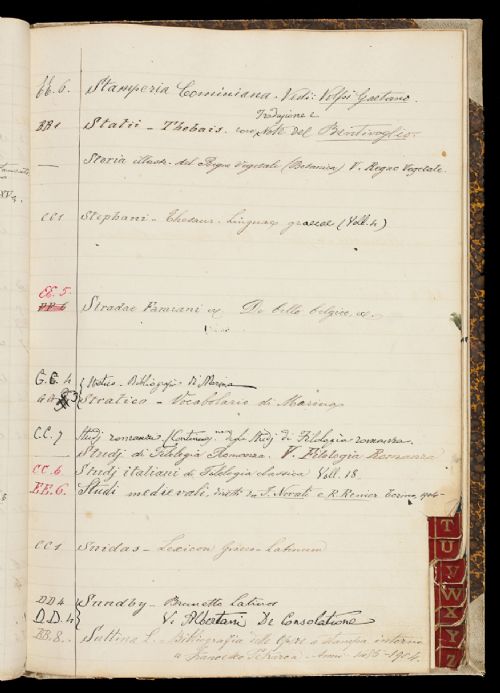 EE. 6. Stamperia Cominiana. Vedi: Volpi Gaetano.
Traduzione e
BB1 Statii - Thebais. con Note del Bentivoglio.
— Storia illustr. del Regno Vegetale (Botanica) V. Regno Vegetale.
CC1 Stephani - Thesaur. Linguae graecae (Voll. 4)
EE. 5.
Stradae Famiani De bello belgico,
G. G. 4 Stratico - Bibliografia di Marina
Stratico - Vocabolario di Marina
CC. 7 Studj romanzi (Continuaz. degli Studj di Filologia romanza.
— Studj di Filologia Romanza. V. Filologia Romanza
CC. 6 Studj italiani di Filologia classica Voll. 18.
EE. 6. Studi medievali, diretti da F. Novati e R. Renier Torino, 1904-
CC1 Suidas - Lexicon Graeco-Latinum
DD4 Sundby - Brunetto Latino
D. D. 4 Vi Albertani De Consolatione
BB. 8. Suttina L. - Bibliografia delle Opere a stampa intorno
a Francesco Petrarca. Anni 1904.
T
U
V
W
X
Y
Z